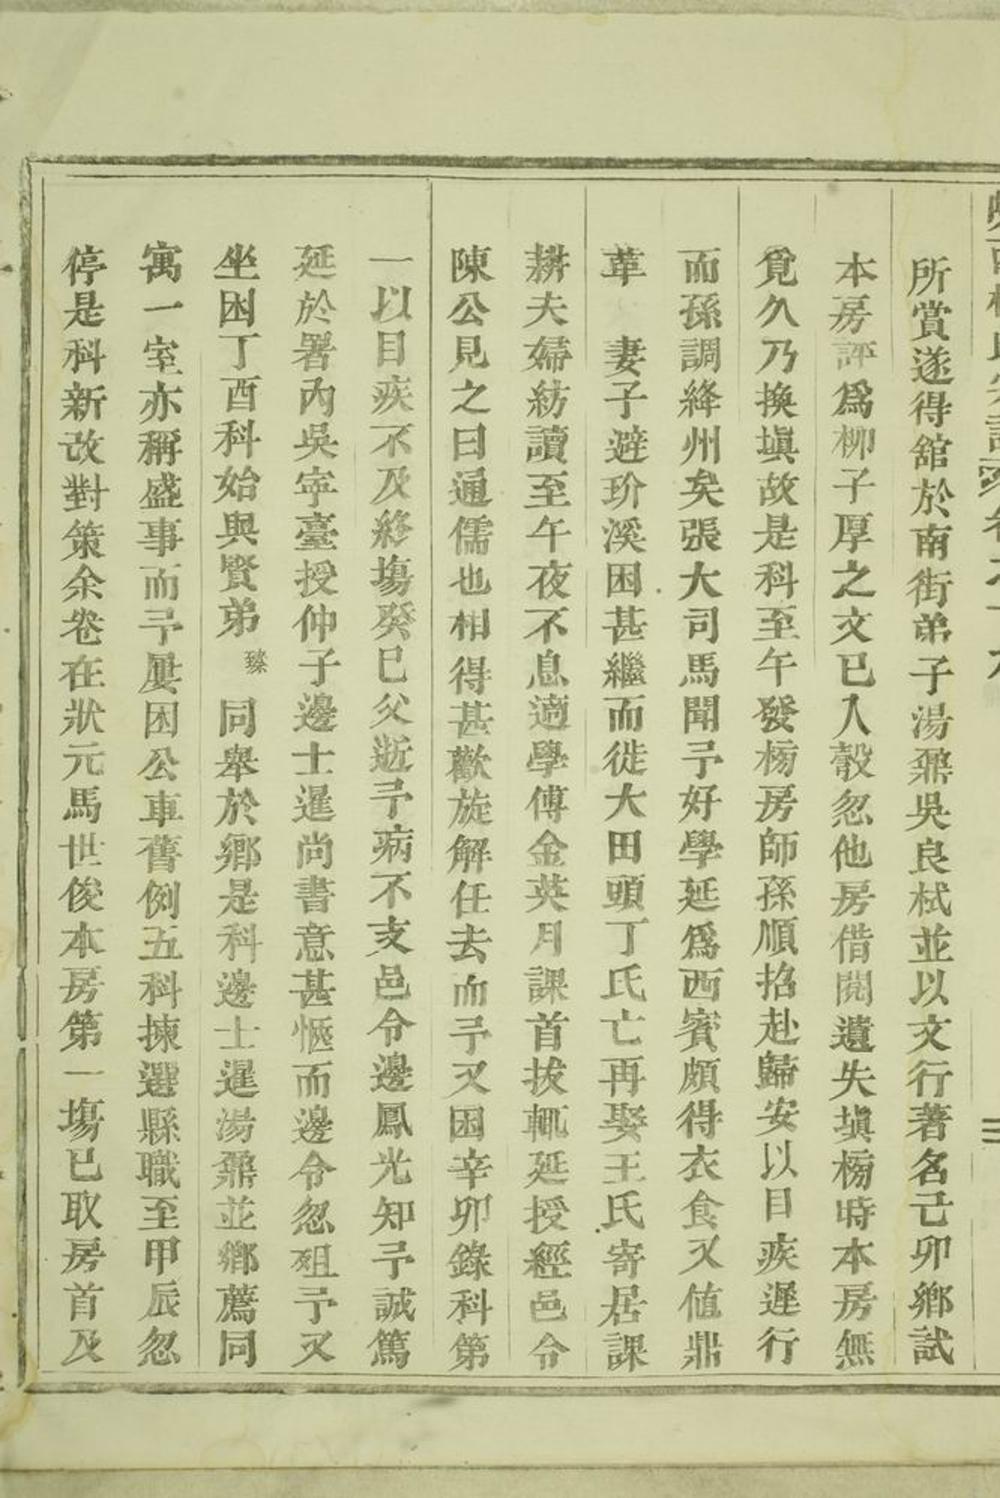 所賞遂得舘於南街弟子湯鼐吳良栻並以文行著名己卯鄉試
本房評爲柳子厚之文已入彀忽他房借閱遺失塡榜時本房無
覓久乃換塡故是科至午發榜房師孫順招赴歸安以目疾遲行
而孫調絳州矣張大司馬聞予好學延爲西賓頗得衣食又値鼎
革　妻子避玠溪困甚繼而徙大田頭丁氏亡再娶王氏寄居課
耕夫婦紡讀至午夜不息適學傅金英月課首拔輒延授經邑令
陳公見之曰通儒也相得甚歡旋解任去而予又困辛卯錄科第
一以目疾不及終塲癸巳父逝予病不支邑令邊鳳光知予誠篤
延於署內吳寜臺授仲子邊士暹尚書意甚愜而邊令忽殂予又
坐困丁酉科始與賢弟臻同舉於鄉是科邊士暹湯鼐並鄉薦同
寓一室亦稱盛事而予屢困公車舊例五科揀選縣職至甲辰忽
停是科新改對策余卷在狀元馬世俊本房第一塲已取房首及